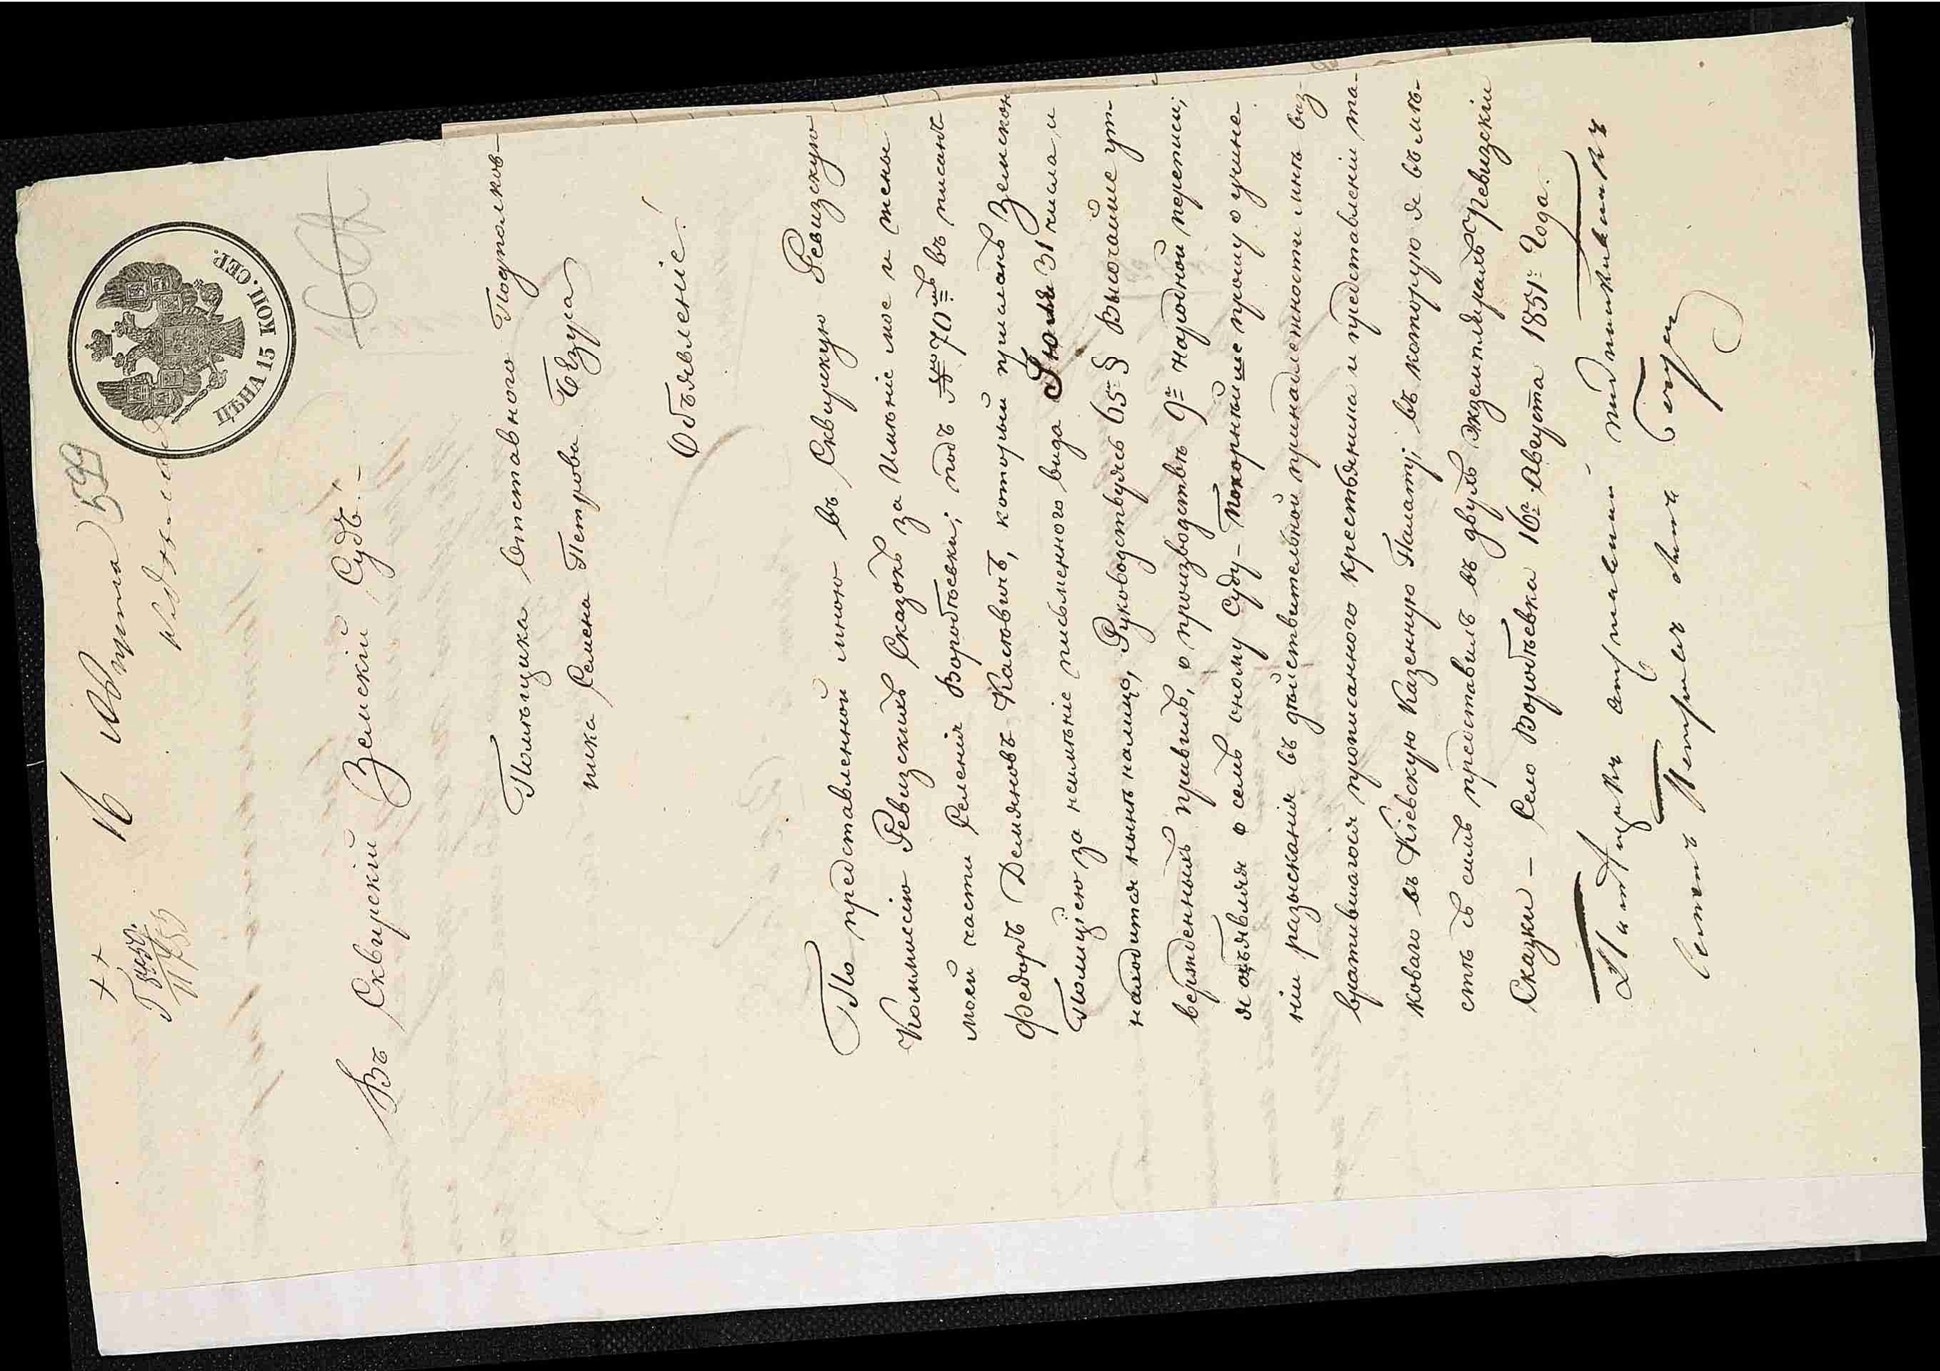 16 Августа
599
ЦѢНА 15 КОП. СЕР.
Въ Сквирскій Земскій Судъ!—
Помѣщика Отставного Подполков-
ника Семена Петрова Безуса
Объявленіе!
По представленной мною въ Сквирскую Ревизскую
Коммисію Ревизскихъ Сказокъ за Имѣніе мое и жены
моей части Селенія Воробіевки; подъ № 70мъ въ писанъ
Федоръ Демяновъ Касъяничъ, который присланъ Земскою
Полиціею за неимѣніе письменного вида Іюля 31 числа и
находится нынѣ налицо, Руководствуясь 65 § Высочайше ут-
вержденныхъ правилъ, о производствѣ 9й народной переписи,
я объявляя о семъ оному Суду — покорнѣйше прошу о учине
ніи разысканія въ дѣйствительной принадлежности мнѣ воз-
вратившагося прописанного крестьянина и представленіи та-
кового въ Кіевскую Казенную Палату; въ которую я въ мѣ-
стѣ съ симъ представилъ въ двухъ экземплярахъ ревизскіи
Сказки — Село Воробіевка 16го Августа 1851: Года.
подполковникъ
Семенъ Петровъ сынъ Безусъ